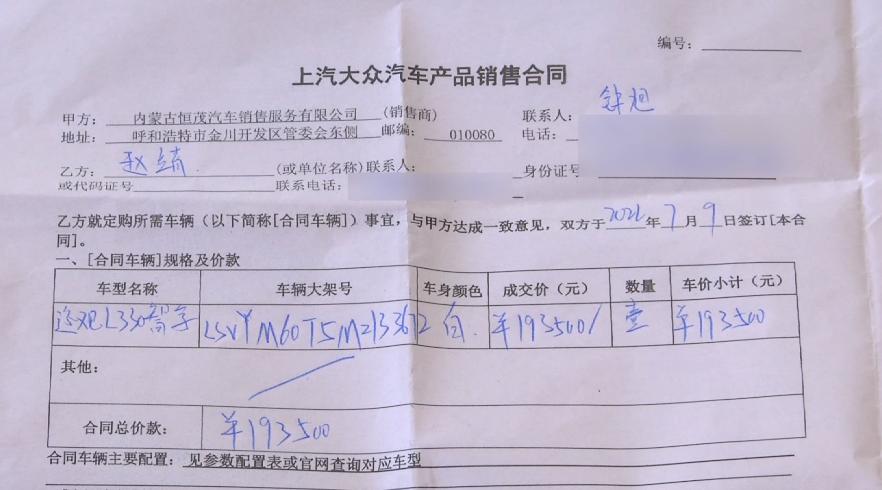 编号：
上汽大众汽车产品销售合同
甲方： 内蒙古恒茂汽车销售服务有限公司 (销售商) 联系人：
地址： 呼和浩特市金川开发区管委会东侧 邮编： 010080 电话：
乙方： 赵 (或单位名称)联系人： 身份证号
或代码证号 联系电话：
乙方就定购所需车辆（以下简称[合同车辆]）事宜，与甲方达成一致意见，双方于2021年7月9日签订[本合
同]。
一、[合同车辆]规格及价款
车型名称 车辆大架号 车身颜色 成交价（元） 数量 车价小计（元）
途观L330智享 LSVYM60T5M2133672 白. ¥193500/ 壹 ¥193500
其他：
合同总价款： ¥193500
合同车辆主要配置： 见参数配置表或官网查询对应车型